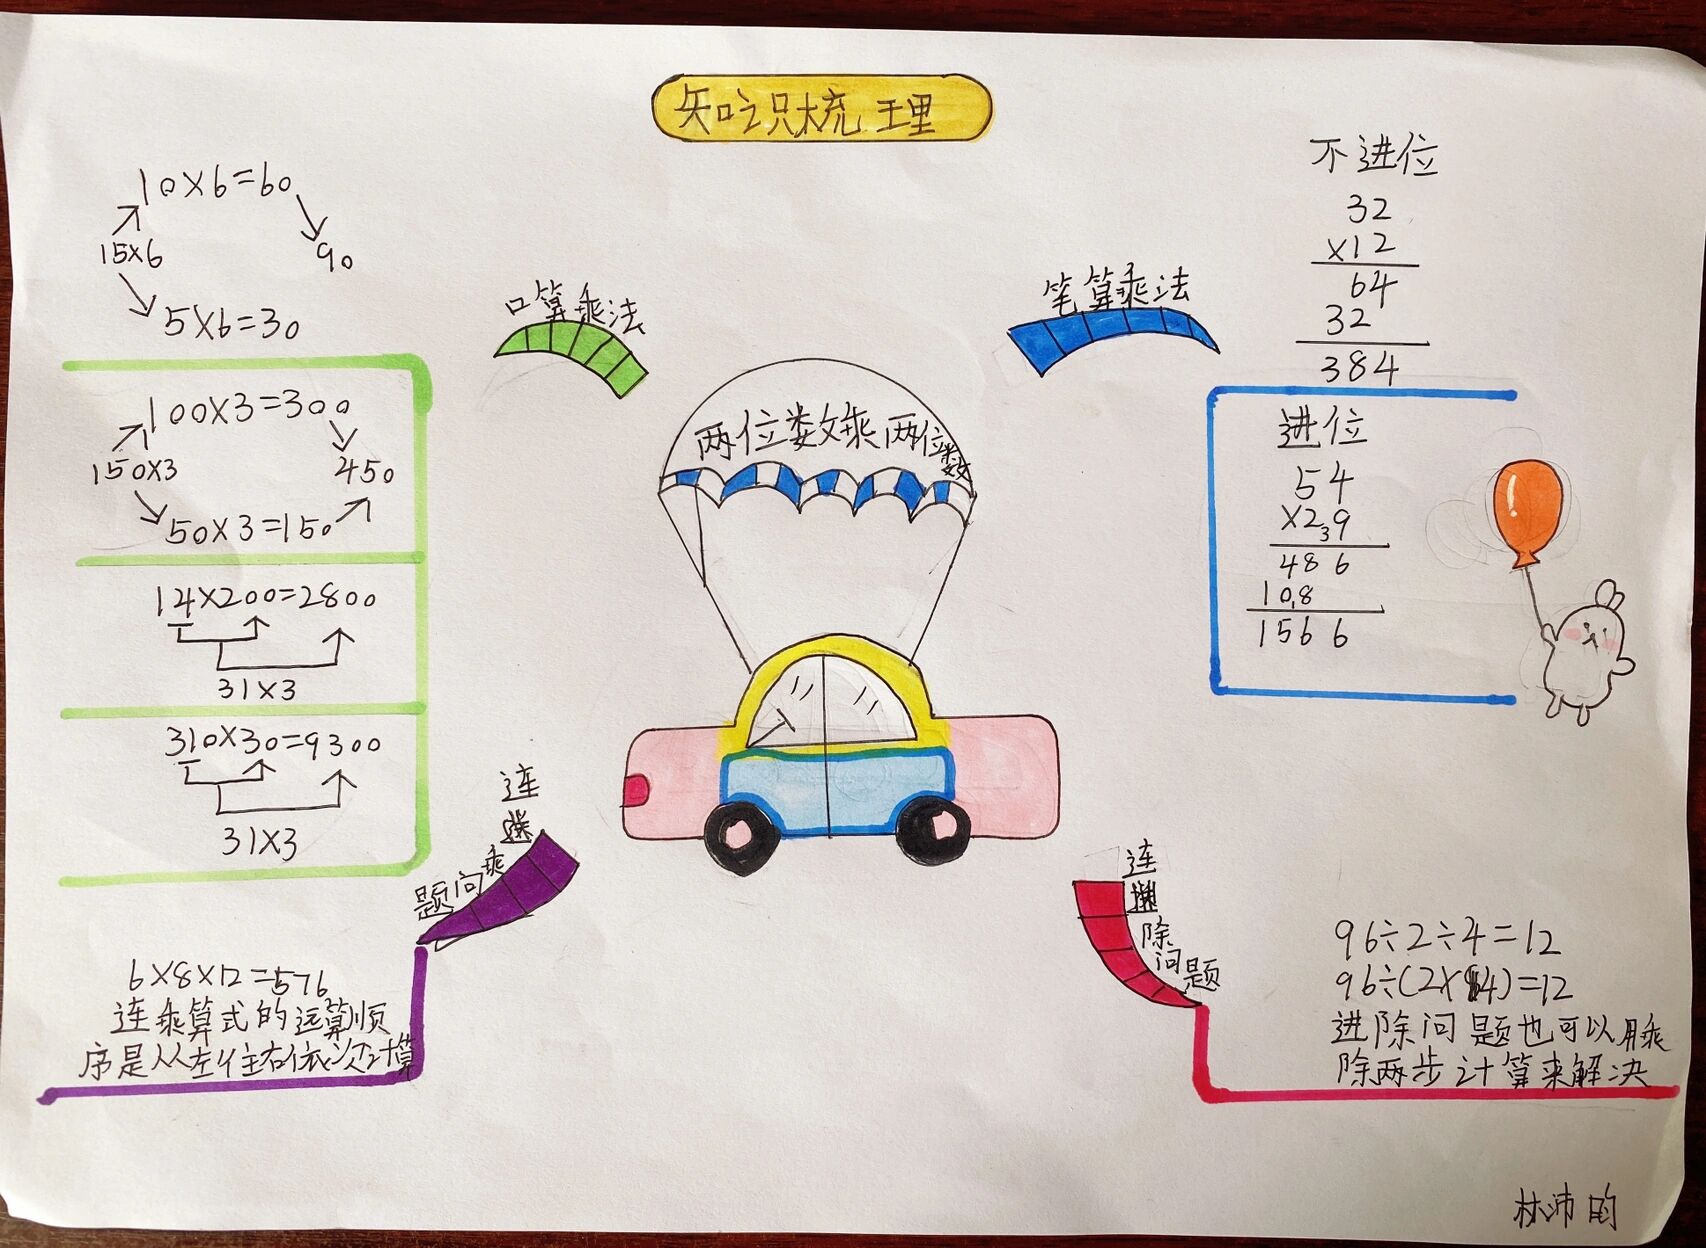 知识梳理
10×6=60
15×6
90
5×6=30
100×3=300
150×3
450
50×3=150
14×200=2800
31×3
310×30=9300
31×3
口算乘法
笔算乘法
两位数乘两位数
不进位
32
×12
64
32
384
进位
54
×2₃9
486
10₁8
1566
连乘问题
6×8×12=576
连乘算式的运算顺
序是从左住右依次计算
连除问题
96÷2÷4=12
96÷(2×4)=12
进除问题也可以用乘
除两步计算来解决
林沛